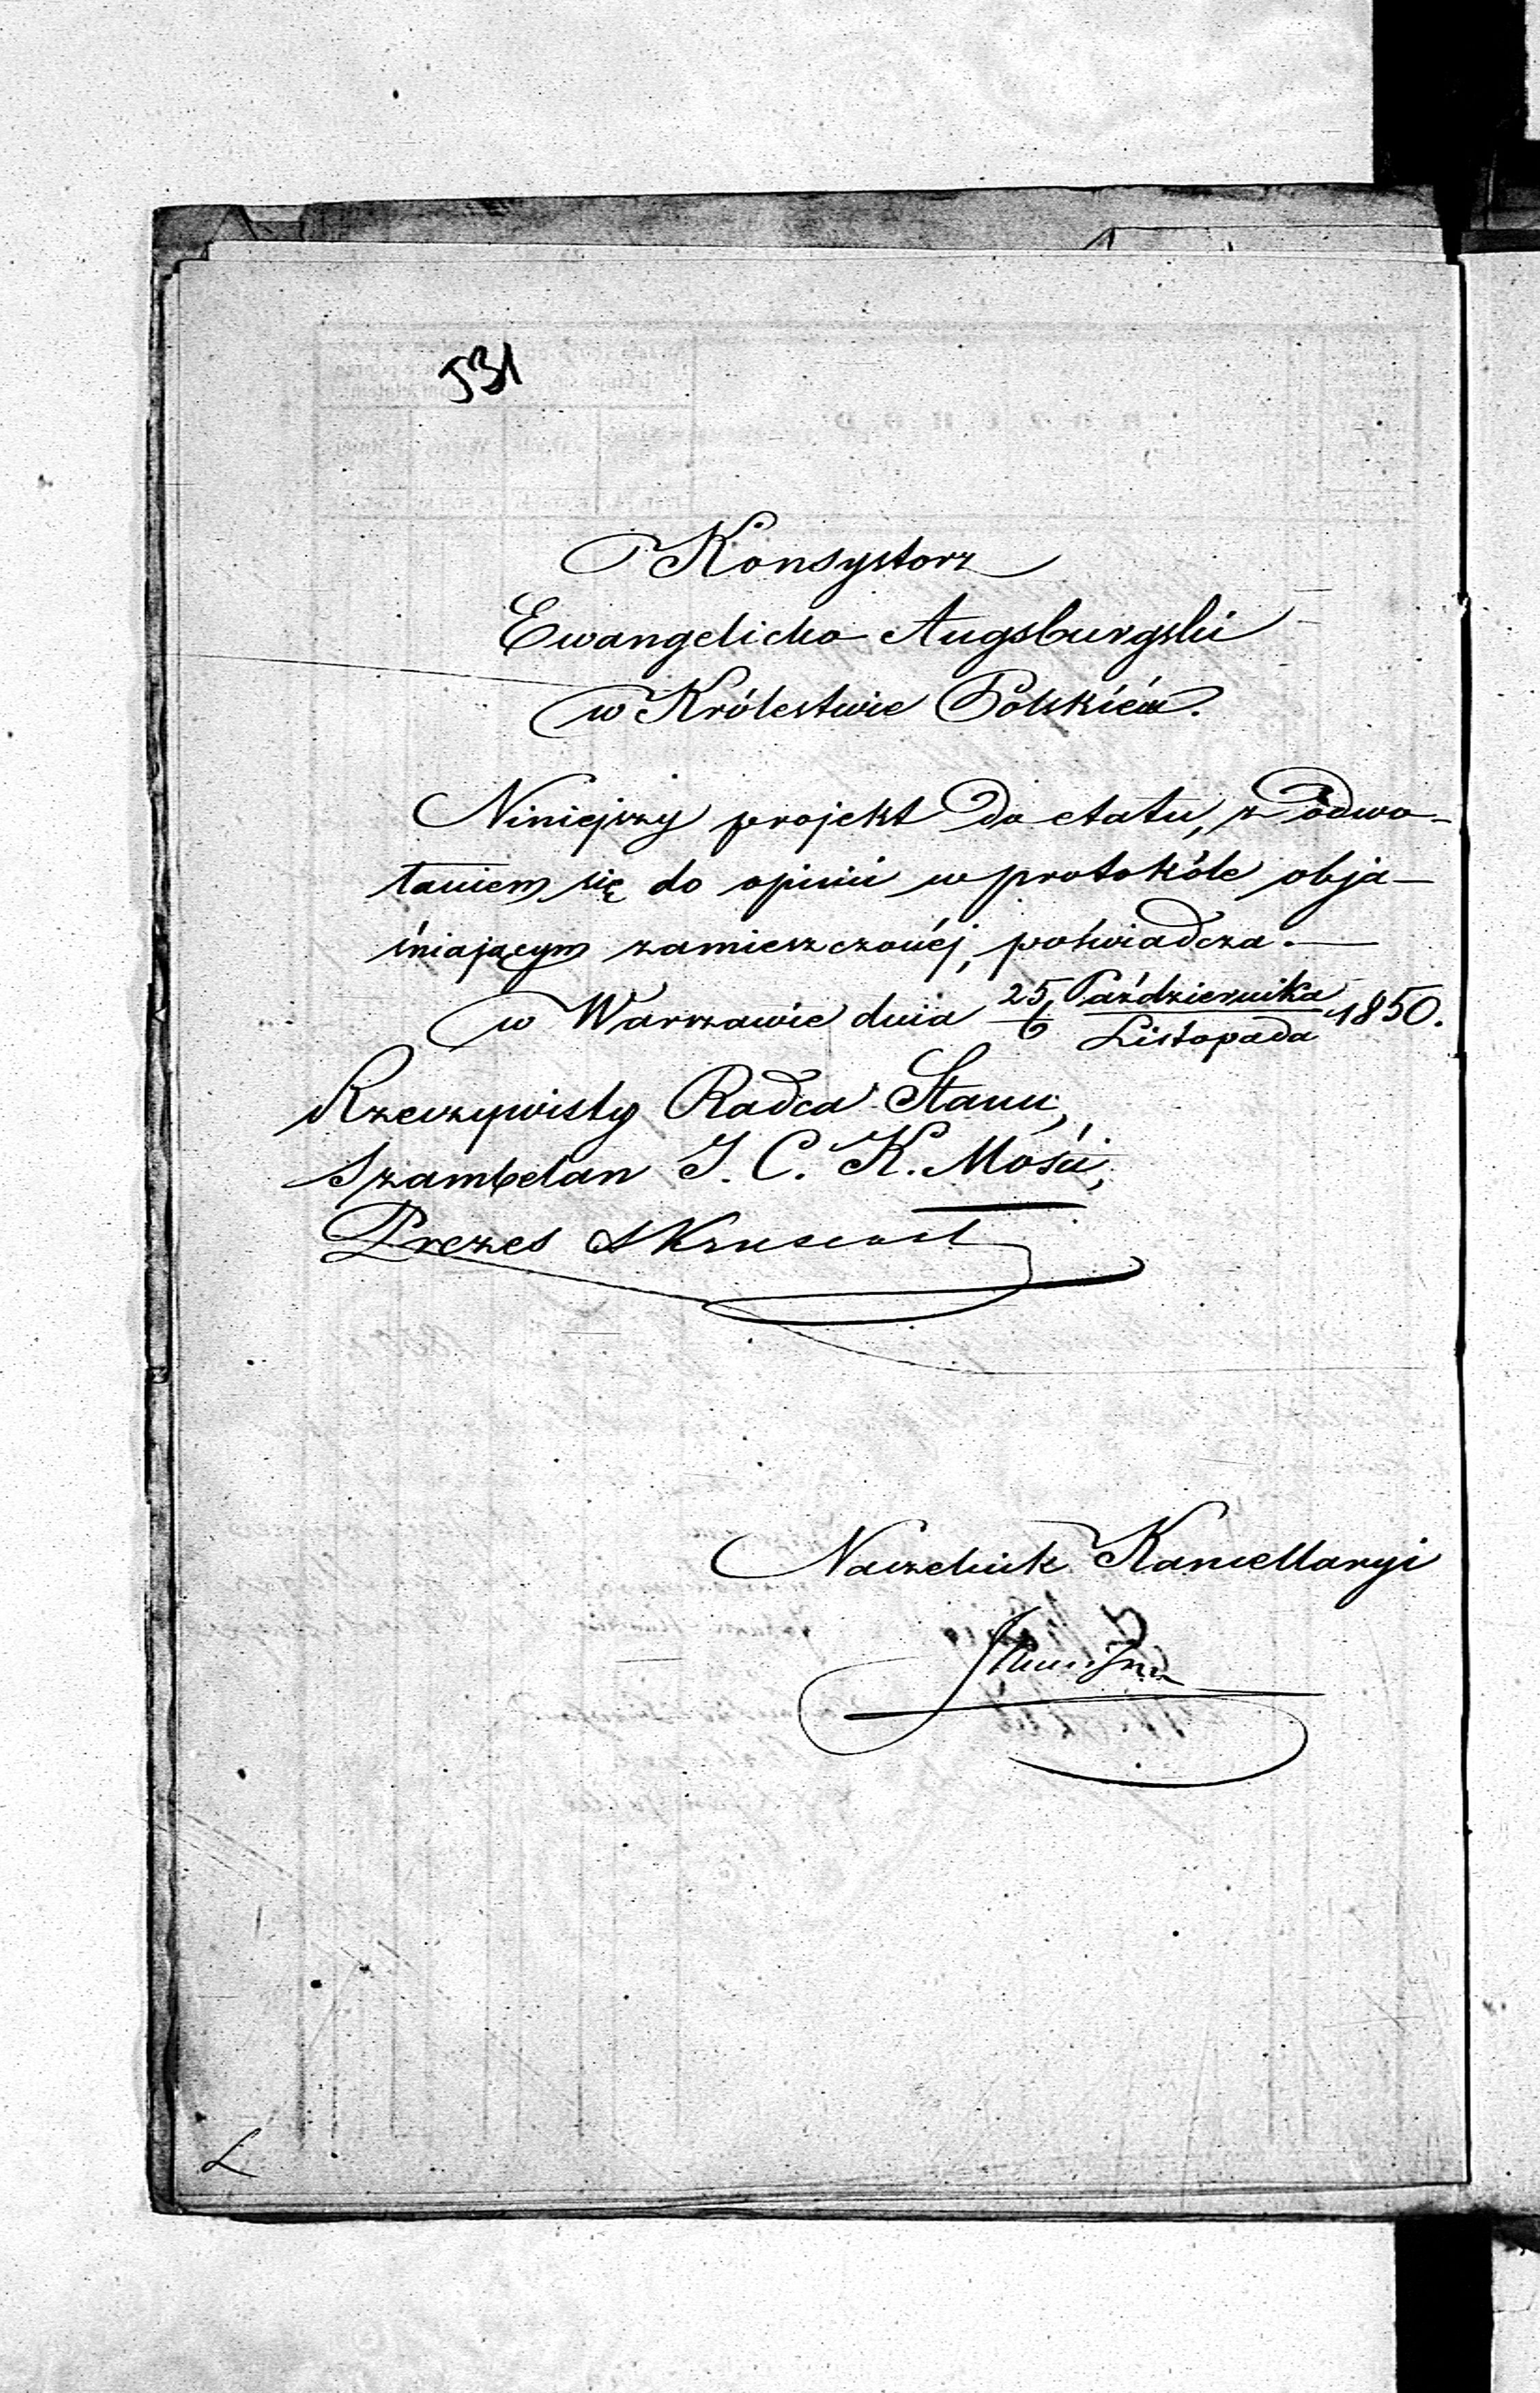 531
Konsystorz
Ewangelicko Augsburgski
w Królestwie Polskiém.
Niniejszy projekt do etatu, z odwo-
łaniem się do opinii w protokóle obja-
śniającym zamieszczonéj, poświadcza.—
w Warszawie dnia 25/6 Października/Listopada 1850.
Rzeczywisty Radca Stanu,
Szambelan J. C. K. Mości,
Prezes
Naczelnik Kancellaryi